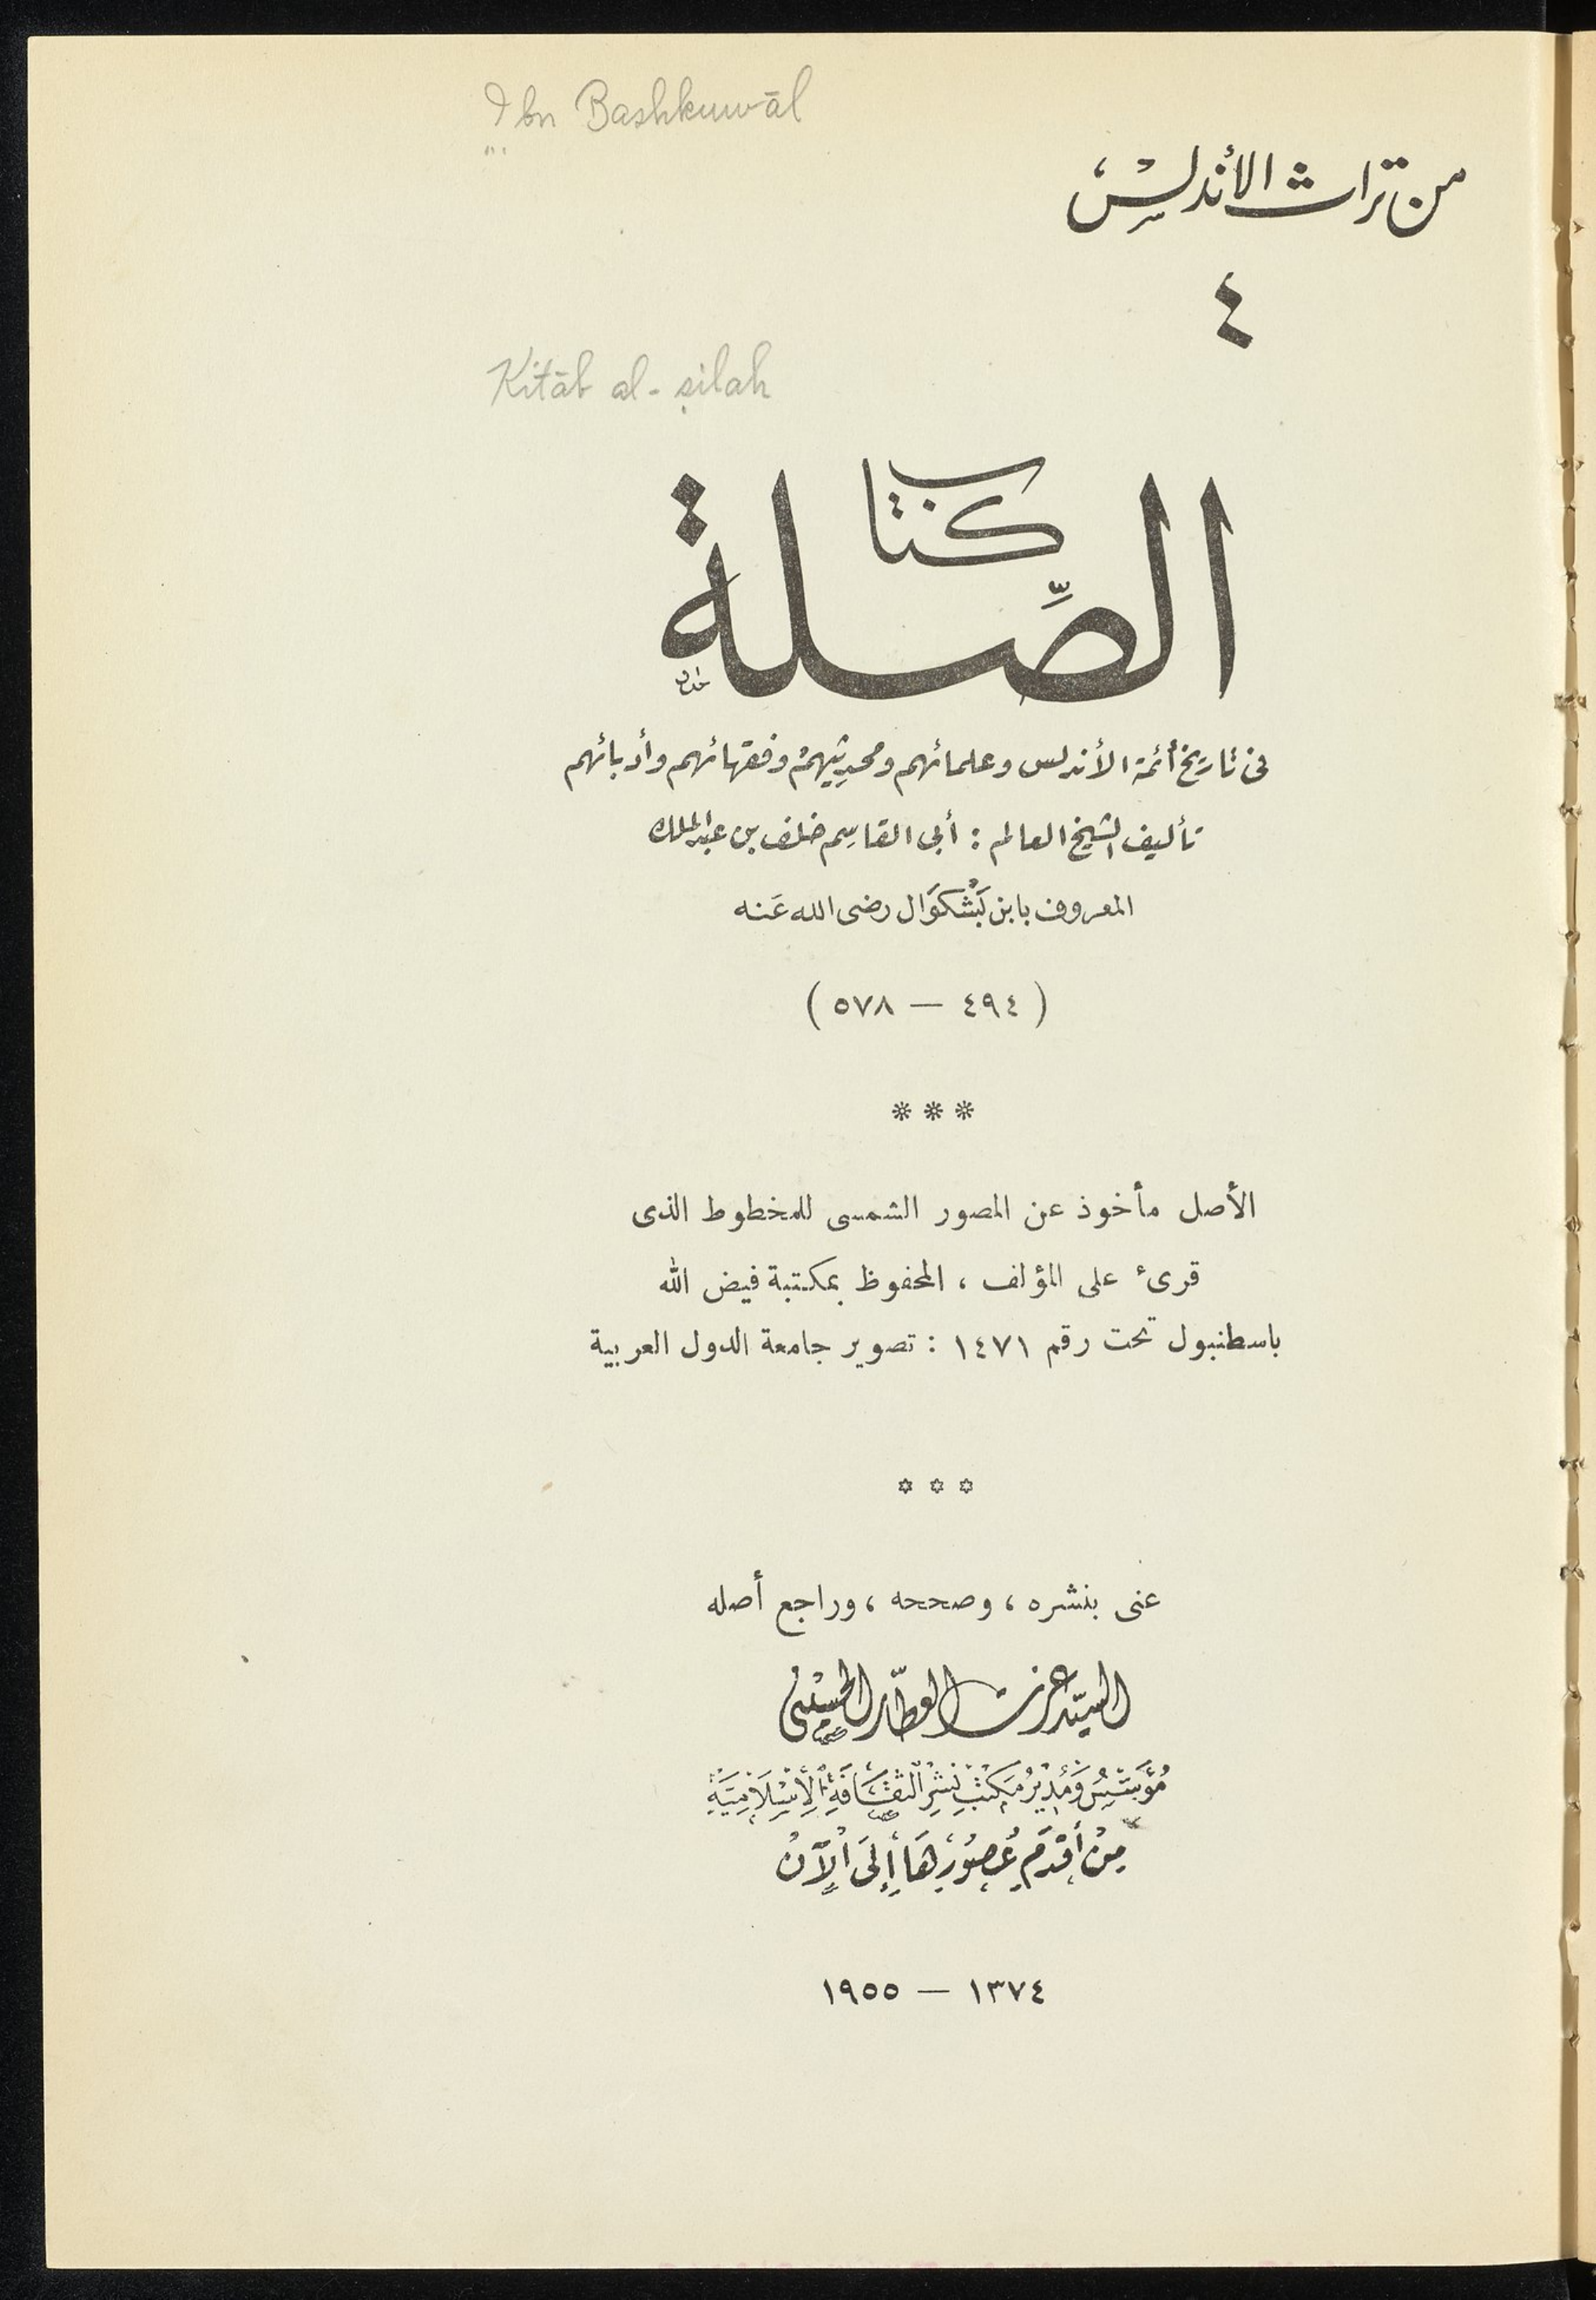 Ibn Bashkuwāl
من تراث الأندلس
٤
Kitāb al-ṣilah
كتاب
الصِّلة
فى تاريخ أئمة الأندلس وعلمائهم ومحدثيهم وفقهائهم وأدبائهم
تأليف الشيخ العالم : أبى القاسم خلف بن عبد الملك
المعروف بابن بَشْكُوَال رضى الله عَنه
( ٤٩٤ — ٥٧٨ )
* * *
الأصل مأخوذ عن المصور الشمسى للمخطوط الذى
قرئ على المؤلف ، المحفوظ بمكتبة فيض الله
باسطنبول تحت رقم ١٤٧١ : تصوير جامعة الدول العربية
* * *
عنى بنشره ، وصححه ، وراجع أصله
السيّد عزت العطّار الحسينى
مُؤَسِّسُ وَمُدِيْرُ مَكتَبِ نَشْرِ الثَّقَافَةِ الْإِسْلَامِيَّةِ
مِنْ أَقْدَمِ عُصُوْرِهَا إِلَى الْآنْ
١٣٧٤ — ١٩٥٥